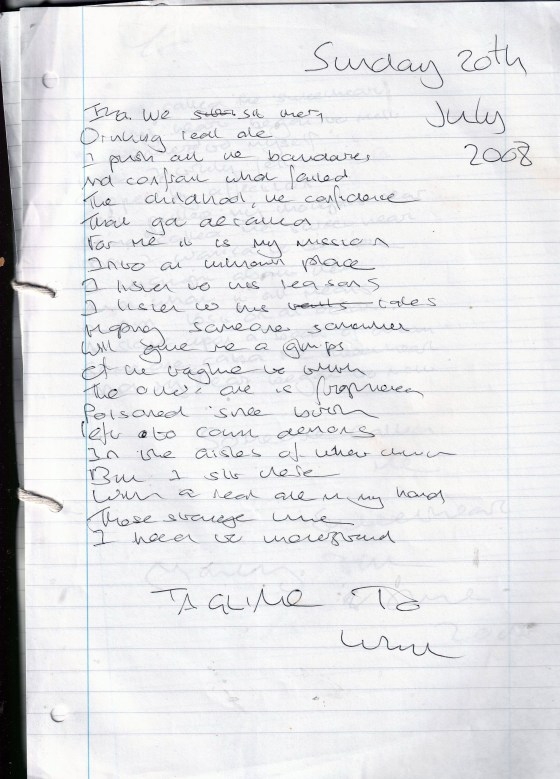 Sunday 20th
July
2008
we sit
Drinking real ale
I push all the boundaries
And confront what failed
The childhood, the confidence
That got derailed
For me it is my mission
Into an unknown place
I listen to his reasons
I listen to his tales
Hoping someone somewhere
Will give me a glimpse
Of the
The other one is
Poisoned since birth
left to count demons
In the aisles of
But I sit here
With a real ale in my hand
These strange
I need to understand
TAGLINE TO